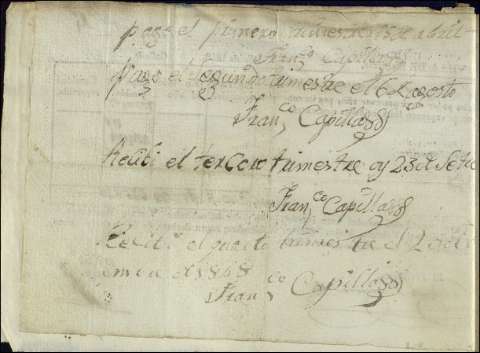 pago el primero trimestre 15 de abril
Fran,co Capillas
pago el segundo trimestre el 6 de agosto
Fran,co Capillas
Recibi el tercer trimestre oy 23 de Setie
Fran,co Capillas
Recibi el quarto trimestre el 2 de
de 1868
Fran,co Capillas